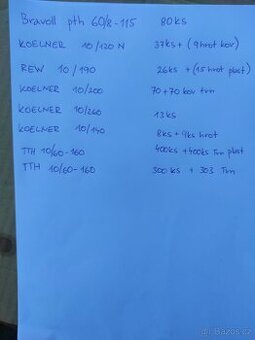 Bravoll pth 60/8-115 80ks
KOELNER 10/120 N 37ks + (9 hrot kov)
REW 10/190 26ks + (15 hrot plast)
KOELNER 10/200 70+70 kov trn
KOELNER 10/260 13ks
KOELNER 10/140 8ks + 9ks hrot
TTH 10/60-160 400ks + 400ks Trn plast
TTH 10/60-160 300ks + 303 Trn
Bazos.cz